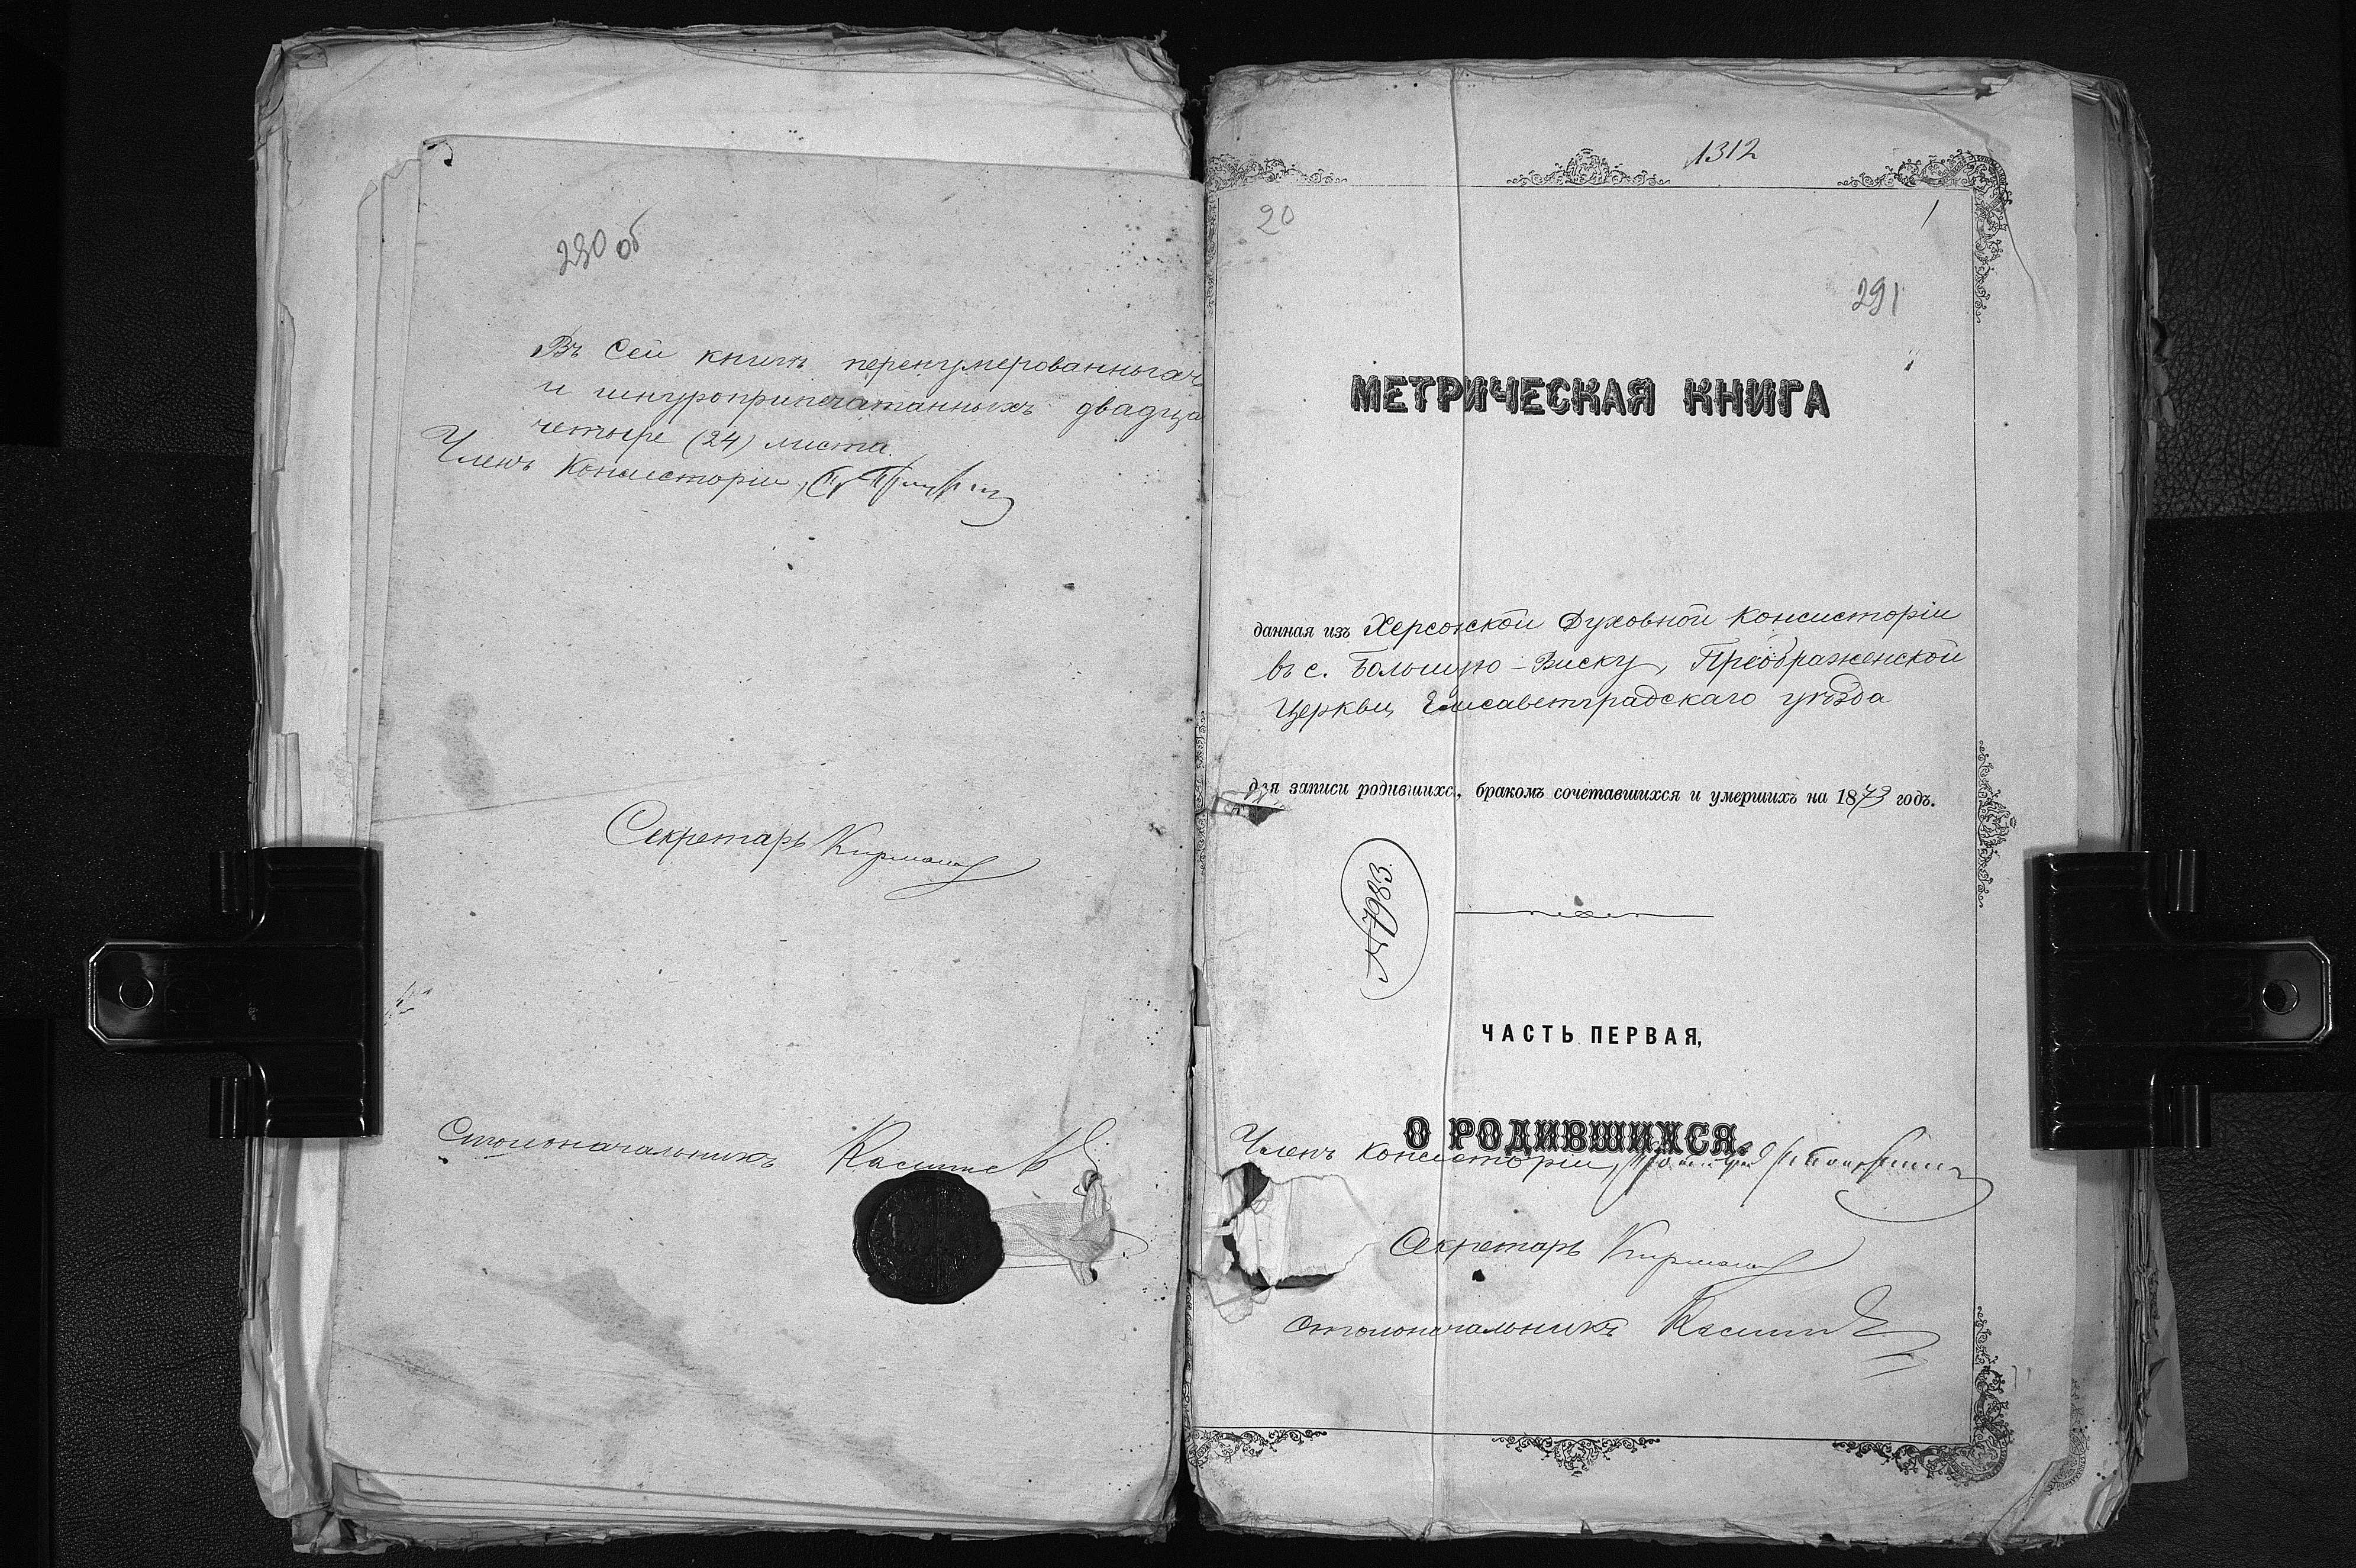 290 об
Въ сей книгѣ перенумерованныхъ
и шнуроприпечатанныхъ двадца
четыре (24) листа.
Членъ Консисторіи,
Секретарь
Столоначальникъ
1312
20
1
291
МЕТРИЧЕСКАЯ КНИГА
данная изъ Херсонской Духовной Консисторіи
въ с. Большую-Виску, Преображенской
Церкви Елисаветградскаго уѣзда
для записи родившихс, бракомъ сочетавшихся и умершихъ на 1873 годъ.
№ 7983.
ЧАСТЬ ПЕРВАЯ,
О РОДИВШИХСЯ.
Членъ Консисторіи,
Секретарь
Столоначальникъ